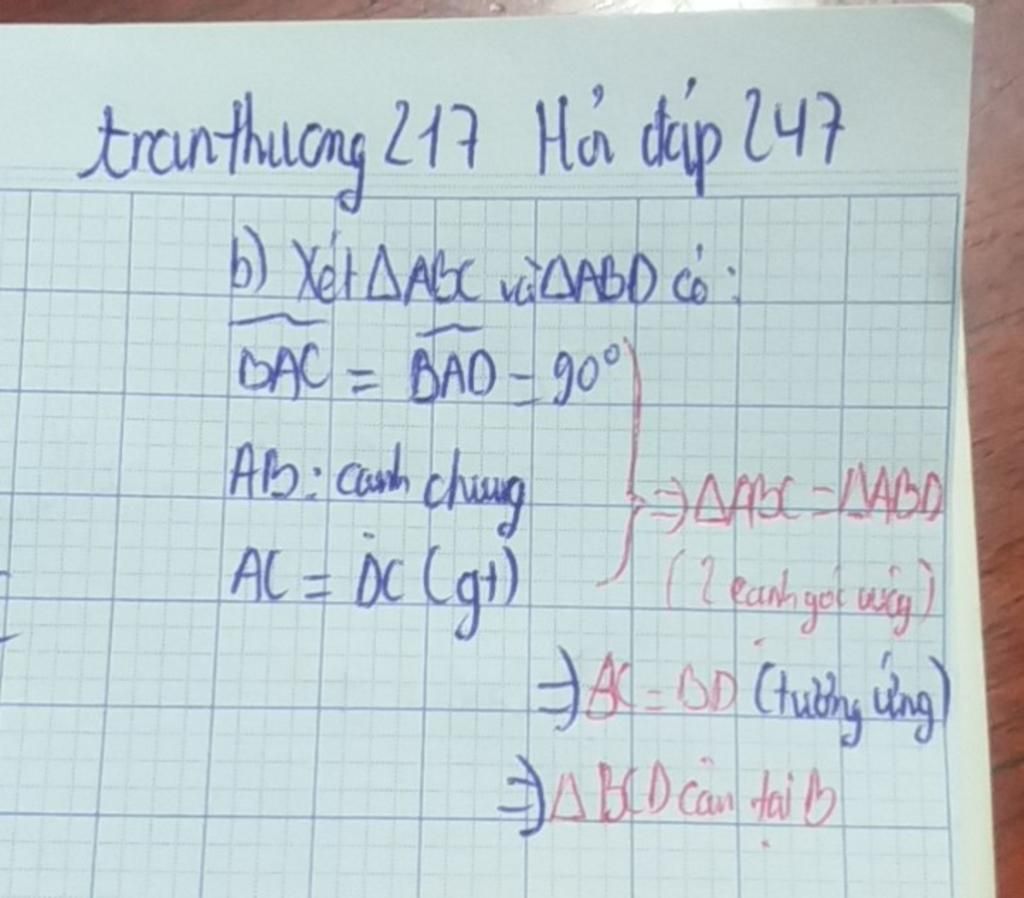 tranthuong217 Hỏi đáp 247
b) Xét ΔABC và ΔABD có:
BAC = BAD = 90°
AB: cạnh chung
AC = DC (gt)
⇒ ΔABC = ΔABD
(2 cạnh góc vuông)
⇒ BC = BD (tương ứng)
⇒ Δ BCD cân tại B